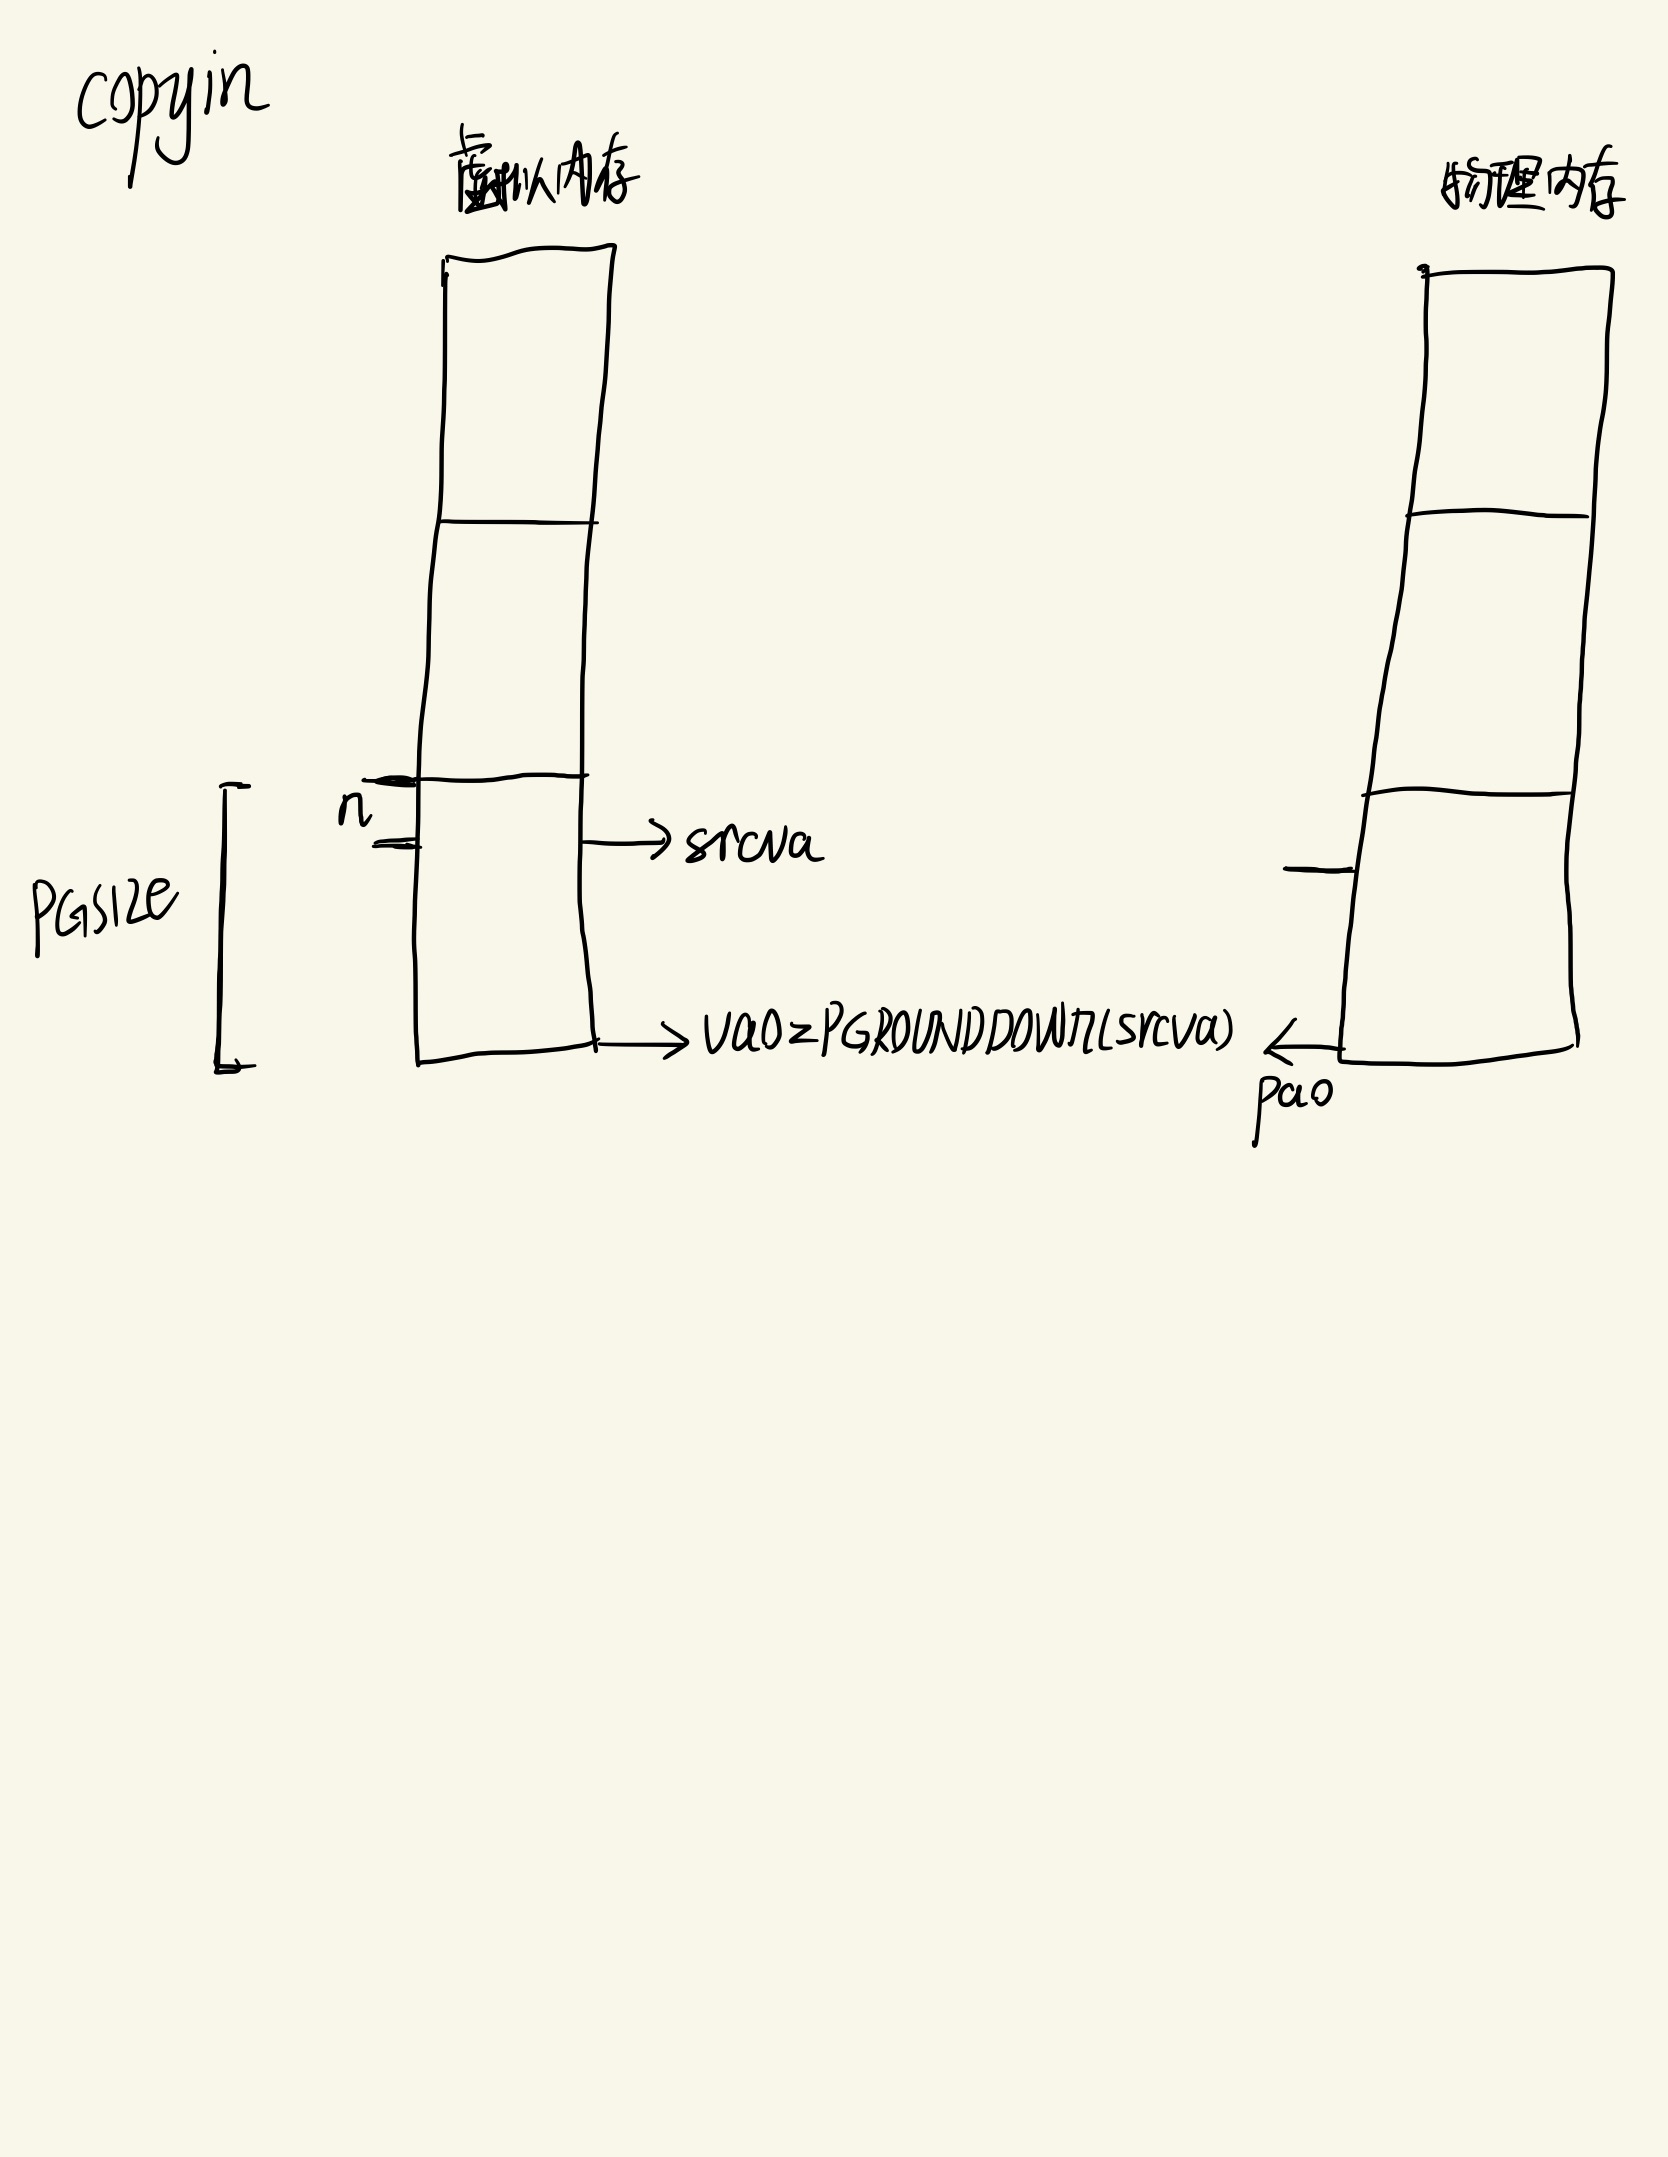 copyin
虚拟内存
物理内存
n
srcva
PGSIZE
va0=PGROUNDDOWN(srcva)
pa0